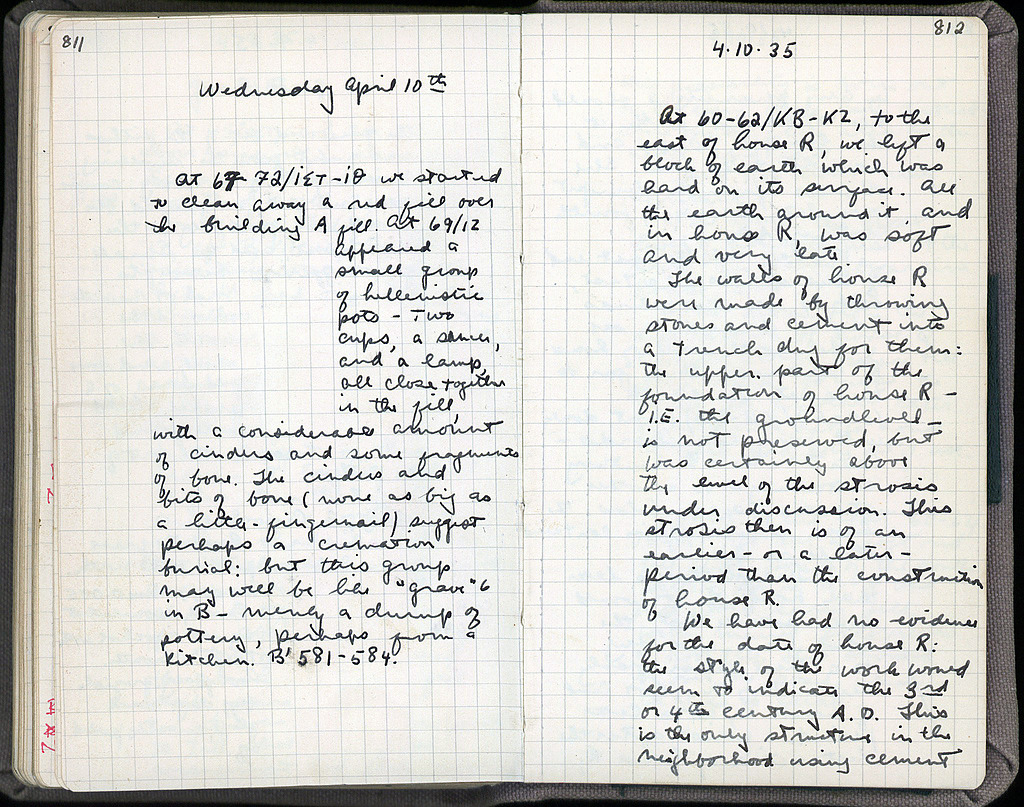 811
Wednesday April 10th
At 67-72/ΙΣΤ-ΙΘ we started
to clean away a red fill over
the building A fill. At 69/ΙΖ
appeared a
small group
of hellenistic
pots - Two
cups, a saucer,
and a lamp,
all close together
in the fill,
with a considerable amount
of cinders and some fragments
of bone. The cinders and
bits of bone (none as big as
a little-fingernail) suggest
perhaps a cremation
burial: but this group
may well be like "grave" 6
in B - merely a dump of
pottery, perhaps from a
kitchen. B' 581-584.
812
4.10.35
At 60-62/ΚΒ-ΚΖ, to the
east of house R, we left a
block of earth which was
hard on its surface. All
the earth around it, and
in house R, was soft
and very late
The walls of house R
were made by throwing
stones and cement into
a trench dug for them:
the upper part of the
foundation of house R -
I.E. the groundlevel -
is not preserved, but
was certainly above
the level of the strosis
under discussion. This
strosis then is of an
earlier - or a later -
period than the construction
of house R.
We have had no evidence
for the date of house R:
the style of the work would
seem to indicate the 3rd
or 4th century A.D. This
is the only structure in the
neighborhood using cement
7
7